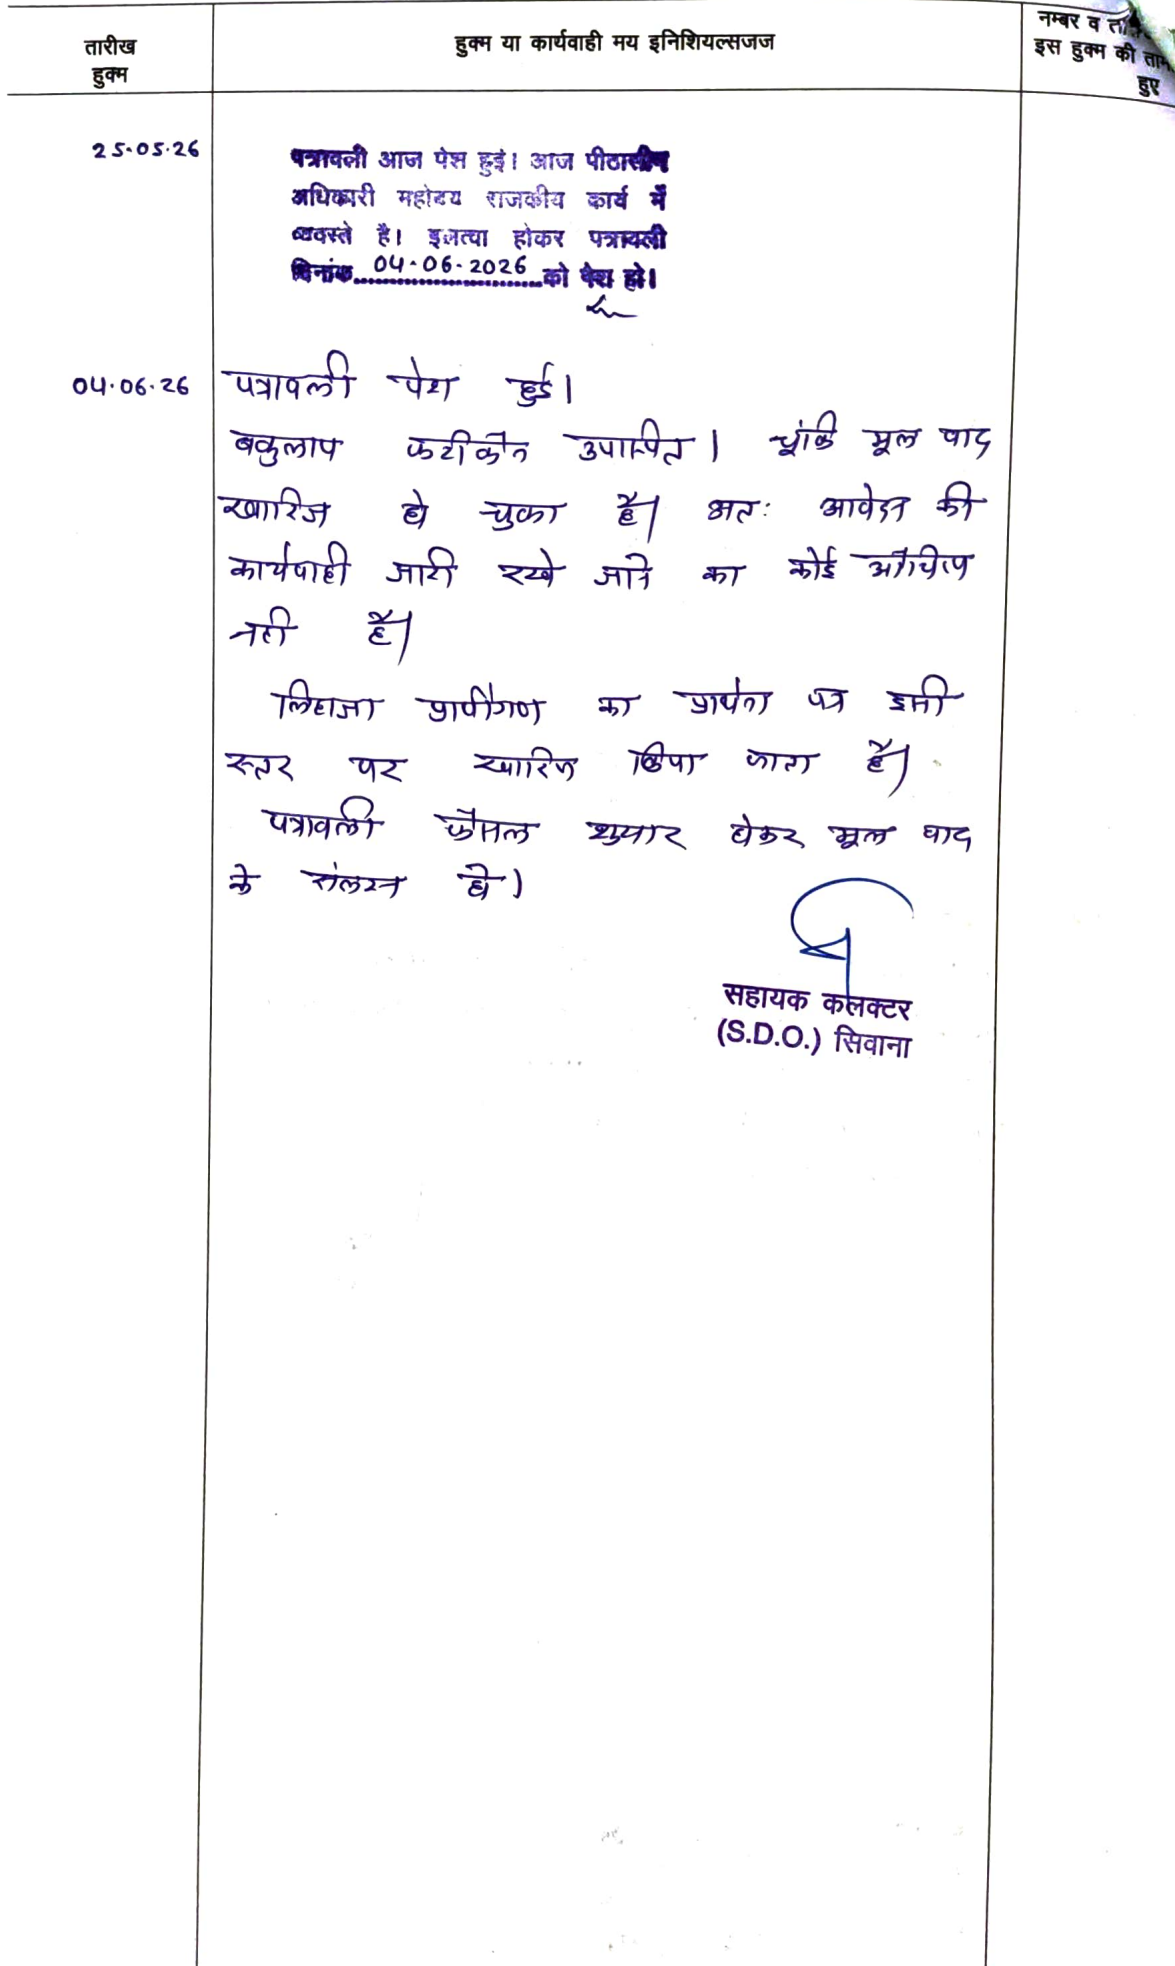 तारीख
हुक्म
हुक्म या कार्यवाही मय इनिशियल्सजज
नम्बर व
इस हुक्म की
हुए
25.05.26
पत्रावली आज पेश हुई। आज पीठासीन
अधिकारी महोदय राजकीय कार्य में
व्यवस्ते है। इलत्वा होकर पत्रावली
दिनांक 04-06-2026 को पेश हो।
04.06.26
पत्रावली पेश हुई।
वकुलाय फरीकेन उपस्थित। चूंकि मूल वाद
खारिज हो चुका है। अतः आवेदन की
कार्यवाही जारी रखे जाने का कोई औचित्य
नही है।
लिहाजा प्रार्थीगण का प्रार्थना पत्र इसी
स्तर पर खारिज किया जाता है।
पत्रावली फैसल शुमार होकर मूल वाद
के संलग्न हो।
सहायक कलक्टर
(S.D.O.) सिवाना